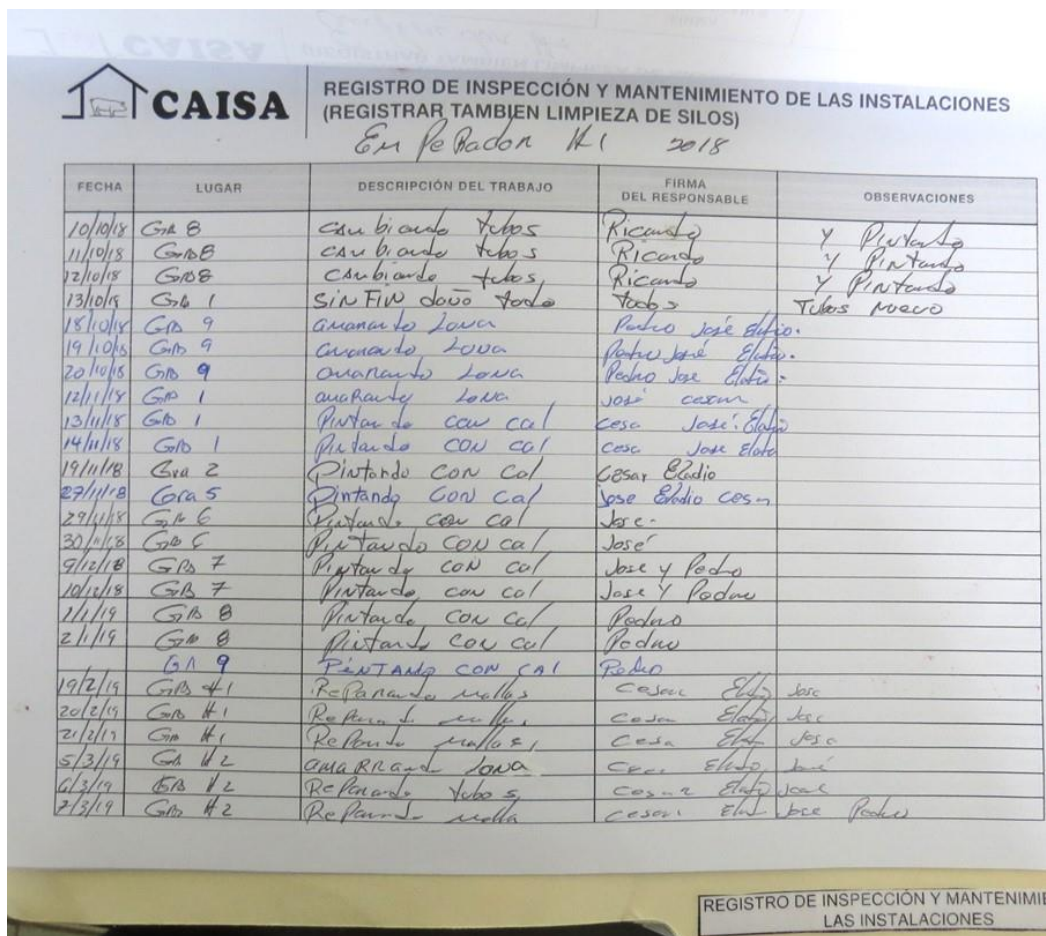 CAISA
REGISTRO DE INSPECCIÓN Y MANTENIMIENTO DE LAS INSTALACIONES
(REGISTRAR TAMBIEN LIMPIEZA DE SILOS)
EmPeRador #1 2018
FECHA LUGAR DESCRIPCIÓN DEL TRABAJO FIRMA DEL RESPONSABLE OBSERVACIONES
10/10/18 GRB 8 cambiando tubos Ricardo y Pintando
11/10/18 GRB 8 cambiando tubos Ricardo y Pintando
12/10/18 GRB 8 cambiando tubos Ricardo y Pintando
13/10/18 GRB 1 SINFIN todo todos Tubos Nuevo
18/10/18 GRB 9 Lona Pedro José
19/10/18 GRB 9 Lona Pedro José
20/10/18 GRB 9 Lona Pedro Jose
12/11/18 GRB 1 Lona José cesar
13/11/18 GRB 1 Pintando con cal cesa José
14/11/18 GRB 1 Pintando CON cal cesa Jose
19/11/18 Gra 2 Pintando CON Cal Cesar Eladio
27/11/18 Gra 5 Pintando CON Cal Jose Eladio Cesar
29/11/18 GRB 6 Pintando con cal Jose
30/11/18 GRB 6 Pintando CON cal José
9/12/18 GRB 7 Pintando CON cal Jose y Pedro
10/12/18 GRB 7 Pintando con cal Jose Y Pedro
1/1/19 GRB 8 Pintando con cal Pedro
2/1/19 GRB 8 Pintando con cal Pedro
GR 9 PINTANDO CON CAL Pedro
19/2/19 GRB #1 Reparando mallas Cesar Jose
20/2/19 GRB #1 Jose
21/2/19 GRB #1 mallas Cesa Jose
5/3/19 GRB #2 amaRRando Lona José
6/3/19 GRB #2 Reparando tubos Cesar José
7/3/19 GRB #2 malla Cesar Jose Pedro
REGISTRO DE INSPECCIÓN Y MANTENIMIE
LAS INSTALACIONES